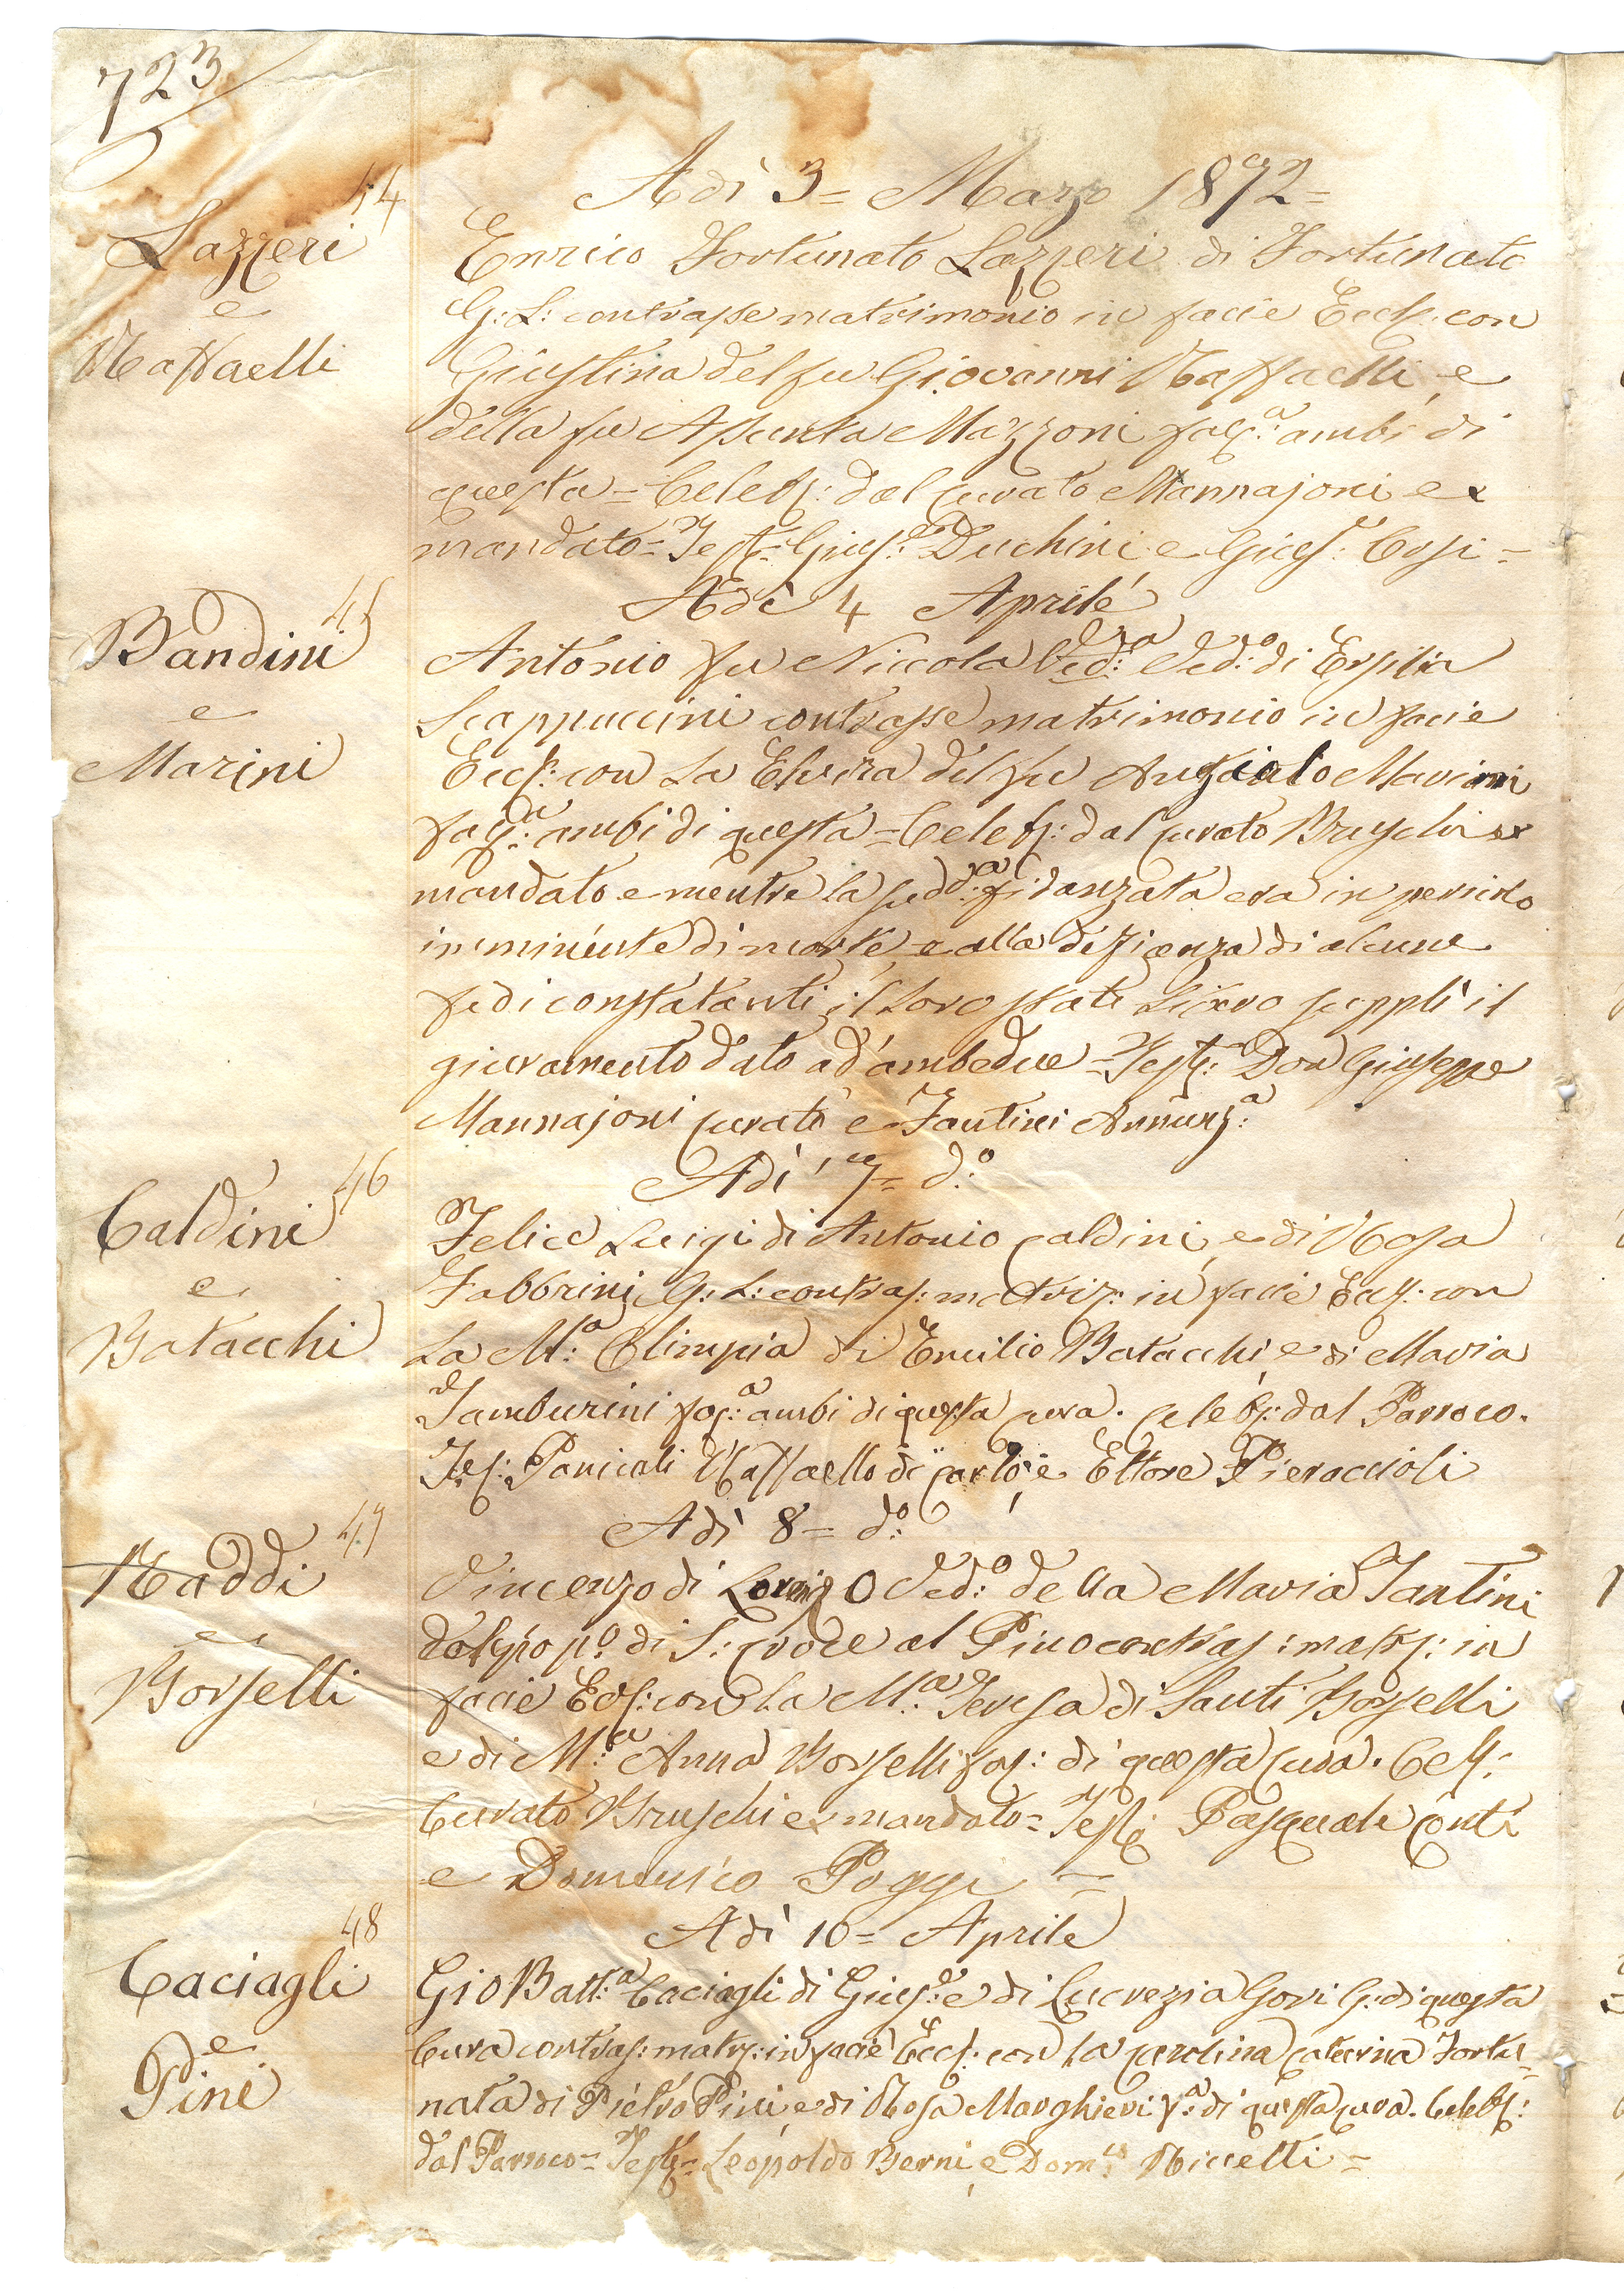 723
44
Adì 3= Marzo 1892=
Lazzeri
e
Raffaelli
Enrico Fortunato Lazzeri di Fortunato
G: L: contrasse matrimonio in facie Eccl: con
Giustina del fu Giovanni Raffaelli, e
della fu Assunta Mazzoni ambi di
questa = Celeb: dal curato Mannajoni ex
mandato = Test: Gius:e Duchini e Gius:e
Adì 4 Aprile
45
Bandini
e
Marini
Antonio fu Niccola Ved:o di
Scappuccini contrasse matrimonio in facie
Eccl: con La Elvira del fu Angiolo Marini
ambi di questa = Celeb: dal curato Bruschi ex
mandato e mentre la sudd:a fidanzata era in pericolo
imminente di morte, e alla deficienza di alcune
fedi constatanti il loro stato libero supplì il
giuramento dato ad ambedue = Test: Don Giuseppe
Mannajoni curato e Fantini Annunz:a
Adì 7= d:o
46
Caldini
e
Batacchi
Felice Luigi di Antonio Caldini, e di Rosa
Fabbrini G: L: contras: matriz: in facie Eccl: con
La M:a Olimpia di Emilio Batacchi e di Maria
Tamburini ambi di questa cura. Celeb: dal Parroco.
Tes: Panicali Raffaello di Carlo, e Ettore Pieraccioli
Adì 8= d:o
47
Raddi
e
Borselli
Vincenzo di Lorenzo Ved:o della Maria Santini
del pop:o di S: Croce al Pino contras: matr: in
facie Eccl: con La M:a Teresa di Santi Borselli
e di M:a Anna Borselli di questa cura. Cel:
Curato Bruschi ex mandato = Test: Pasquale Conti
e Domenico Poggi =
Adì 10= Aprile
48
Caciagli
e
Pini
Gio Batt:a Caciagli di Gius:e e di Lucrezia Gori G: di questa
Cura contras: matr: in facie Eccl: con La Carolina Caterina Fortu=
nata di Pietro Pini, e di Rosa Margheri di questa cura. Celeb:
dal Parroco = Test: = Leopoldo Berni, e Dom:co Niccelli =